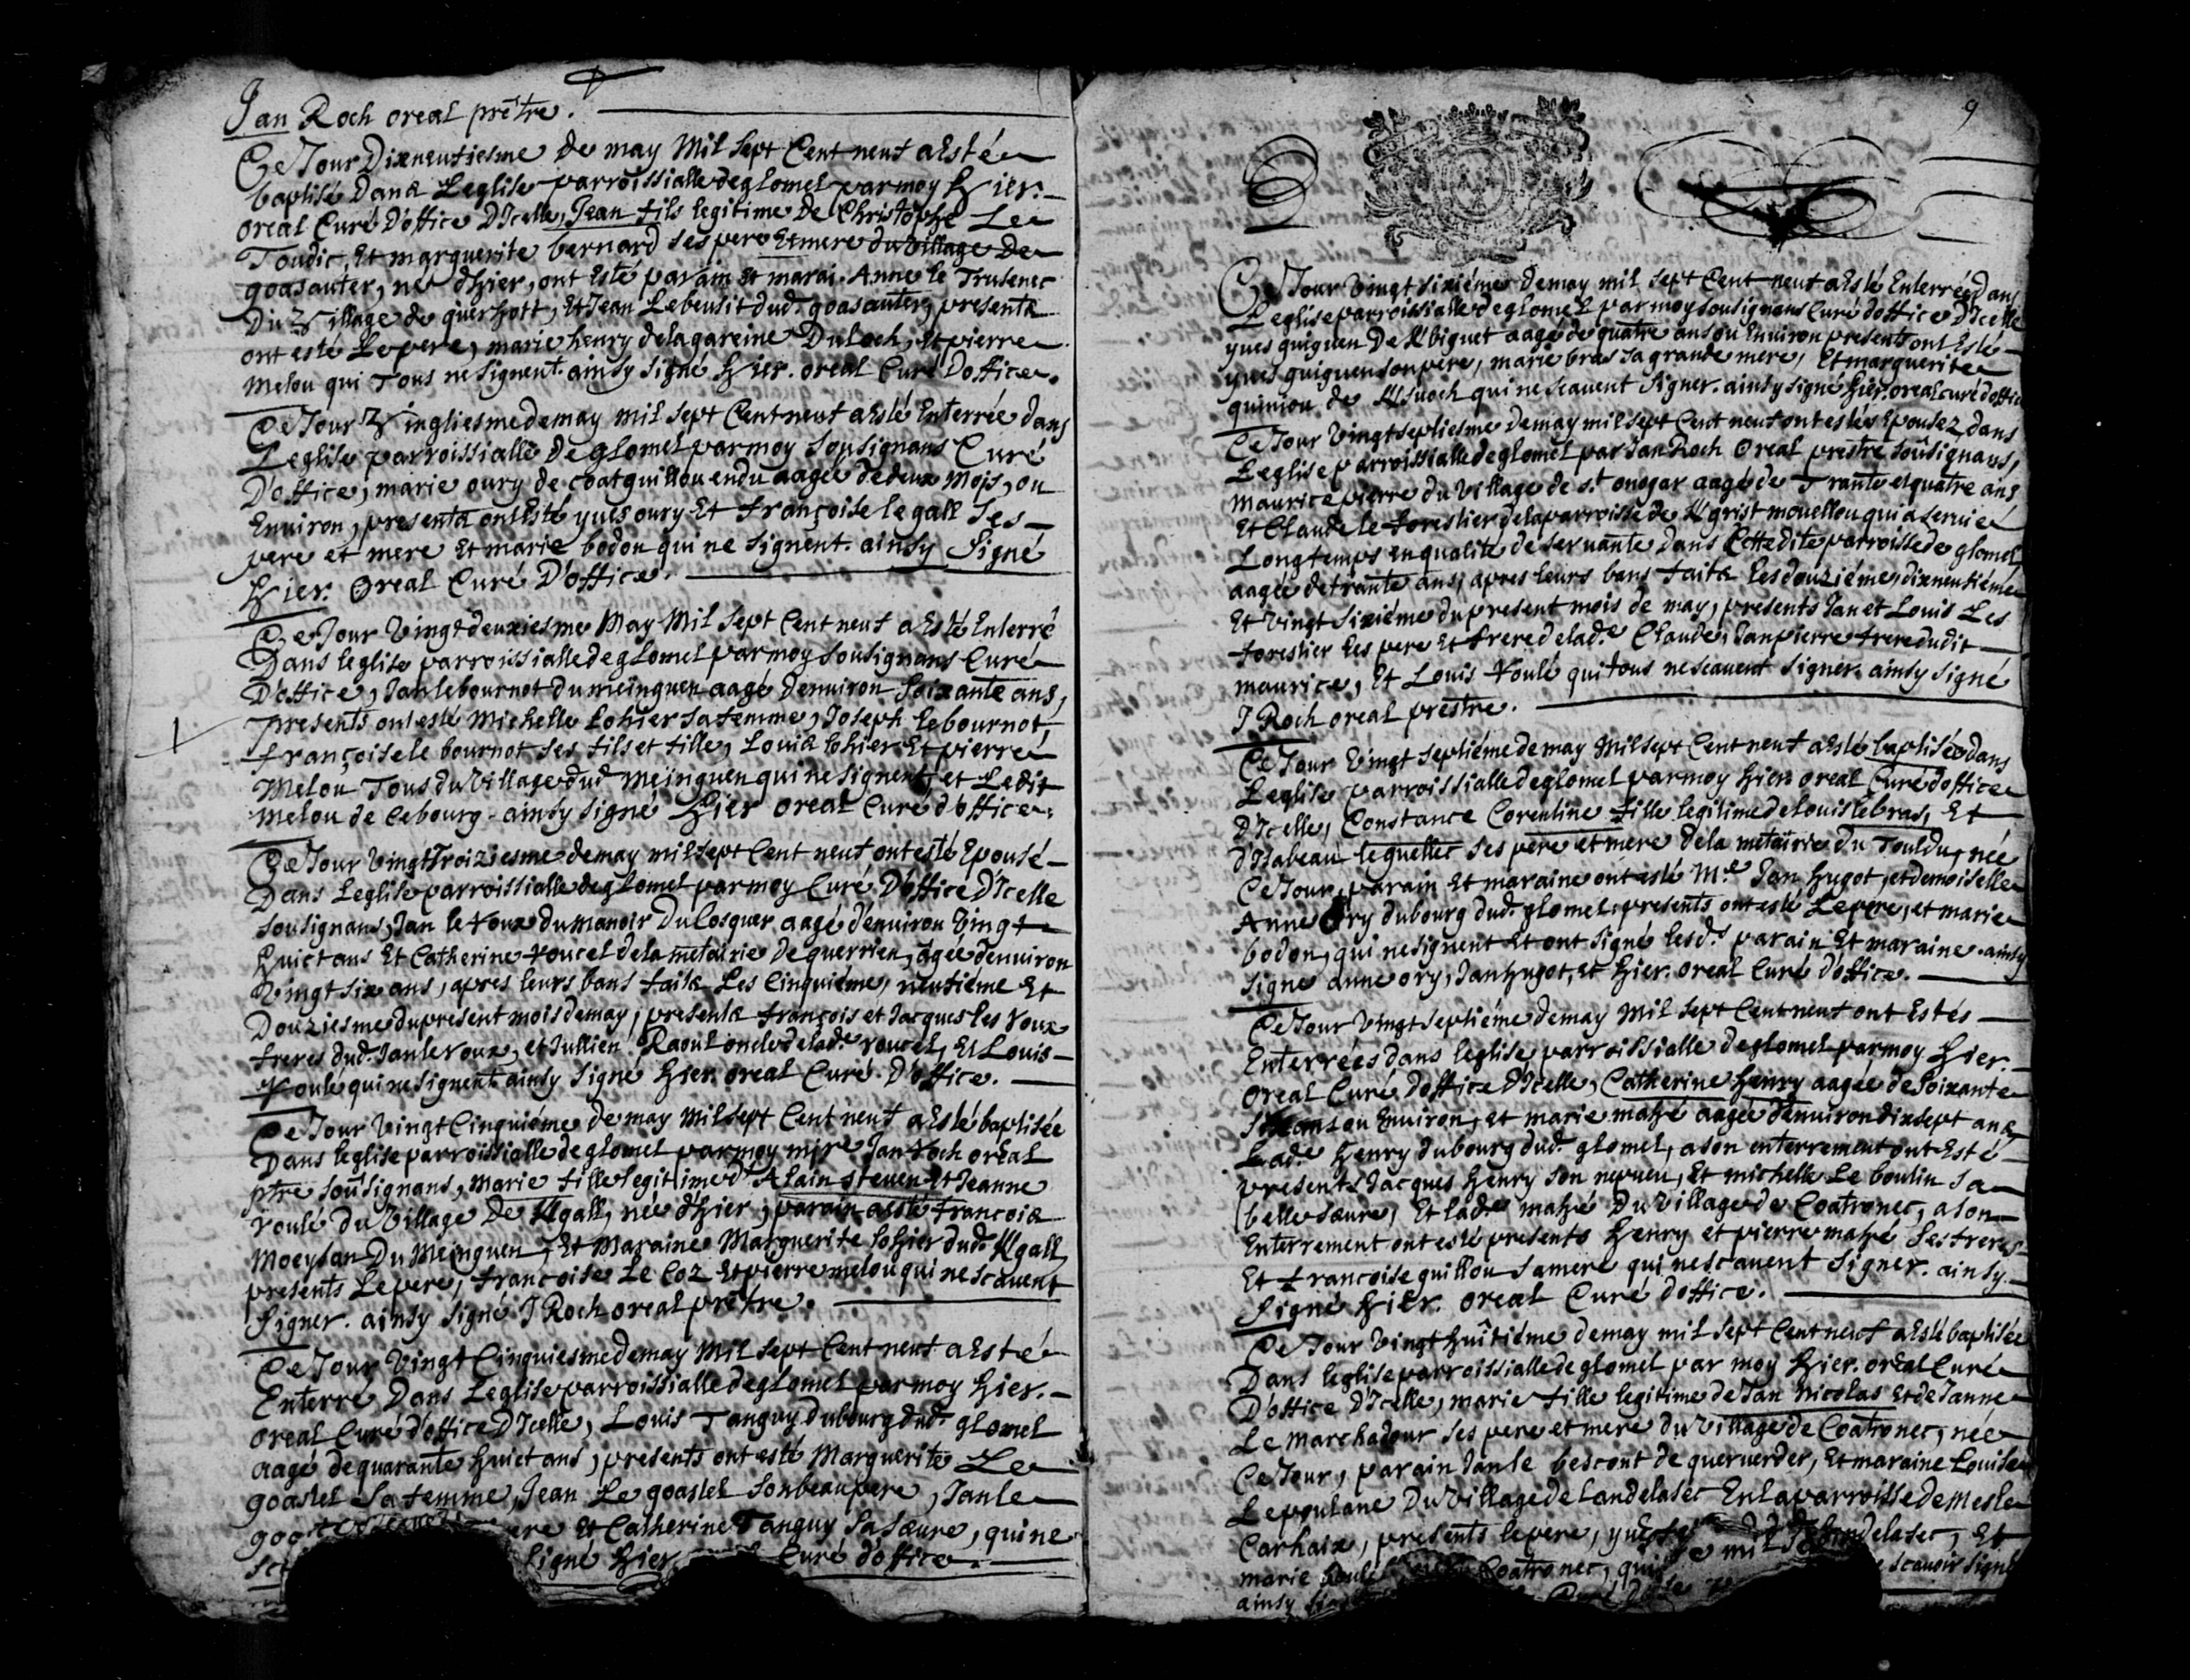 Jan Roch oreal prêtre.
Ce Jour Dixneufiesme de may Mil Sept Cent neuf a Esté
baptisé dans Leglise parroissialle deglomel parmoy Hier.
oreal Curé D'office D'Icelle, Jean fils legitime de Christophe Le
Toudic, Et marguerite bernard ses pere Et mere du Village de
goasauter, né d'hier, ont Esté parain Et marai. Anne le Trusenec
Du Village de querhott, Et Jean Lebeusit dud. goasauter, presents
ont esté Le pere, marie henry delagareine Duloch, Et pierre
melou qui Tous ne signent. ainsy signé Hier. oreal Curé D'office.
Ce Jour Vingtiesme demay mil sept Cent neuf a Esté Enterrée dans
Leglise parroissialle Deglomel parmoy Sousignans Curé
D'office, marie oury de coatguillouendu aagée de deux mois, ou
Environ, presents ont Esté yues oury Et françoise le gall ses
pere et mere Et marie bodon qui ne signent. ainsy Signé
Hier. Oreal Curé D'office.
Ce Jour Vingt deuxiesme May Mil Sept Cent neuf a Esté Enterré
Dans leglise parroissialle deglomel parmoy Sousignans Curé
D'office, Jan lebournot du meinguen aagé denuiron Soixante ans,
presents ont esté Michelle Lohier sa femme, Joseph lebournot,
françoise le bournot ses fils et fille, Louis lohier Et pierre
Melou Tous du Village dud. Meinguen qui ne signent, et Ledit
melou de Cebourg. ainsy signé Hier oreal Curé d'office.
Ce Jour Vingt Troiziesme demay mil sept Cent neuf, ont esté Epousé
Dans Leglise parroissialle deglomel parmoy Curé D'office D'Icelle
sousignans, Jan le roux du Manoir Du Cosquer aagé d'enuiron Vingt
huict ans Et Catherine roucel de la métairie de querrien, agée denuiron
Vingt six ans, apres leurs bans faits Les Cinquiéme, neufiéme Et
Douziesme du present mois de may, presents françois et Jacques les roux
freres dud. Jan le roux, et Jullien Raoul oncle de lad.e roucel, Et Louis
roulé qui ne signent. ainsy signé Hier. oreal Curé D'office.
Ce Jour Vingt Cinquiéme de may Mil sept Cent neuf a Esté baptisée
Dans leglise parroissialle deglomel parmoy mire Jan roch oréal
ptre soûsignans, marie fille legitime d'Alain steuen Et Jeanne
roulé du Village de Kgall, née d'hier, parain a esté françois
Moeysan Du Meinguen, Et Maraine Marguerite lohier dud. Kgall
presents Le pere, françoise Le Coz Et pierre melou qui ne scauent
signer. ainsy signé J Roch oreal prêtre.
Ce Jour Vingt Cinquiesme de may Mil Sept Cent neuf a Esté
Enterré Dans Leglise parroissialle deglomel par moy Hier.
oreal Curé d'office D'Icelle, Louis Tanguy dubourg dud. glomel
aagé de quarante huict ans, presents ont esté Marguerite Le
goastel Sa femme, Jean Le goastel Son beaupere, Jan le
Et Catherine Tanguy Sa sœure, qui ne
signé Hier. Curé d'office.
9
Ce Jour Vingt Sixiéme demay mil sept Cent neuf a Esté Enterré Dans
Leglise parroissialle deglomel parmoy Sousignans Curé d'office D'Icelle
yues guiguen De Kbiguet aagé de quatre ans ou Enuiron presents ont Esté
yues guiguen son pere, marie bras sa grande mere, Et marguerite
quiniou de qui ne scauent signer. ainsy signé Hier. oreal curé d'office
Ce Jour Vingt septiesme Demay mil sept Cent neuf ont estés Epousez dans
Leglise parroissialle deglomel par Jan Roch Oreal prestre soûsignans,
Maurice pierre du Village de s.t onogar aagé de Trante et quatre ans
Et Claude le forestier de la parroisse de Kgrist mouellou qui a seruie
Longtemps en qualité de seruante dans Cette dite parroisse de glomel
aagée de trante ans, apres leurs bans faits les douziéme, dixneufiéme
Et Vingt Sixiéme du present mois de may, presents Jan et Louis Les
forestier les pere Et frere de lad.e Claude, Jan pierre frere dudit
maurice, Et Louis roulé qui tous ne scauent signer. ainsy signé
J Roch oreal prestre.
Ce Jour Vingt Septiéme de may Mil sept Cent neuf a Esté baptisée dans
Leglise parroissialle deglomel parmoy hier. oreal Curé d'office
d'Icelle, Constance Corentine fille legitime de Louis le bras, Et
d'Isabeau leguellec ses pere et mere de la metairie du Touldu, née
Ce Jour, parain Et maraine ont esté M.e Jan hugot, et demoiselle
Anne Ory dubourg dud. glomel, presents ont esté Le pere, et marie
bodon, qui ne signent Et ont signé lesd.s parain Et maraine. ainsy
signé anne ory, Jan hugot, et hier. oreal Curé d'office.
Ce Jour Vingt septiéme demay Mil sept Cent neuf ont Estés
Enterrées dans leglise parroissialle deglomel parmoy Hier.
oreal Curé d'office D'Icelle, Catherine henry aagée de soixante
ans ou Enuiron, et marie mahé aagée d'enuiron dixsept ans
Lad.e henry dubourg dud. glomel, a son enterrement ont Esté
presents Jacques henry son nepueu, Et michelle Le boulin sa
belle sœure, Et lad.e mahé Du Village de Coatronec, a son
Enterrement ont esté presents henry et pierre mahé ses freres
Et francoise guillou sa mere qui ne scauent signer. ainsy
signé Hier. oreal Curé d'office.
Ce Jour Vingt huîtiéme demay mil sept Cent neuf a Esté baptisée
Dans leglise parroissialle de glomel par moy Hier. oréal Curé
D'office D'Icelle, marie fille legitime de Jan nicolas Et de Janne
Le marchadour ses pere et mere du Village de Coatronec, née
Ce Jour, parain Jan le bescont de queruerder, Et maraine Louise
Le poulane Du Village de Landelasec En la parroisse de mesle
Carhaix, presents le pere, Landelasec, Et
marie Coatronec, scauoir signé
ainsy